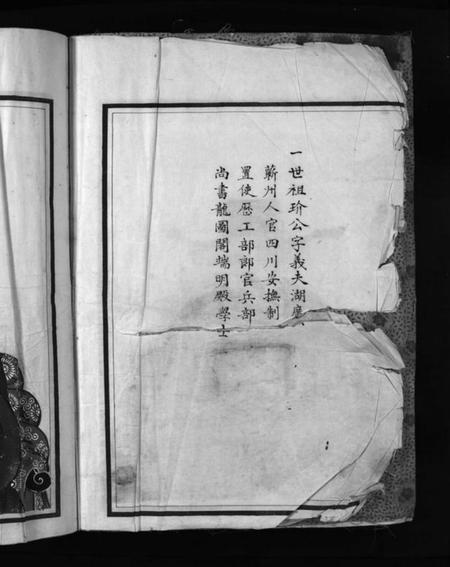 一世祖玠公字義夫湖廣
蘄州人官四川安撫制
置使歷工部郎官兵部
尚書龍圖閣端明殿學士